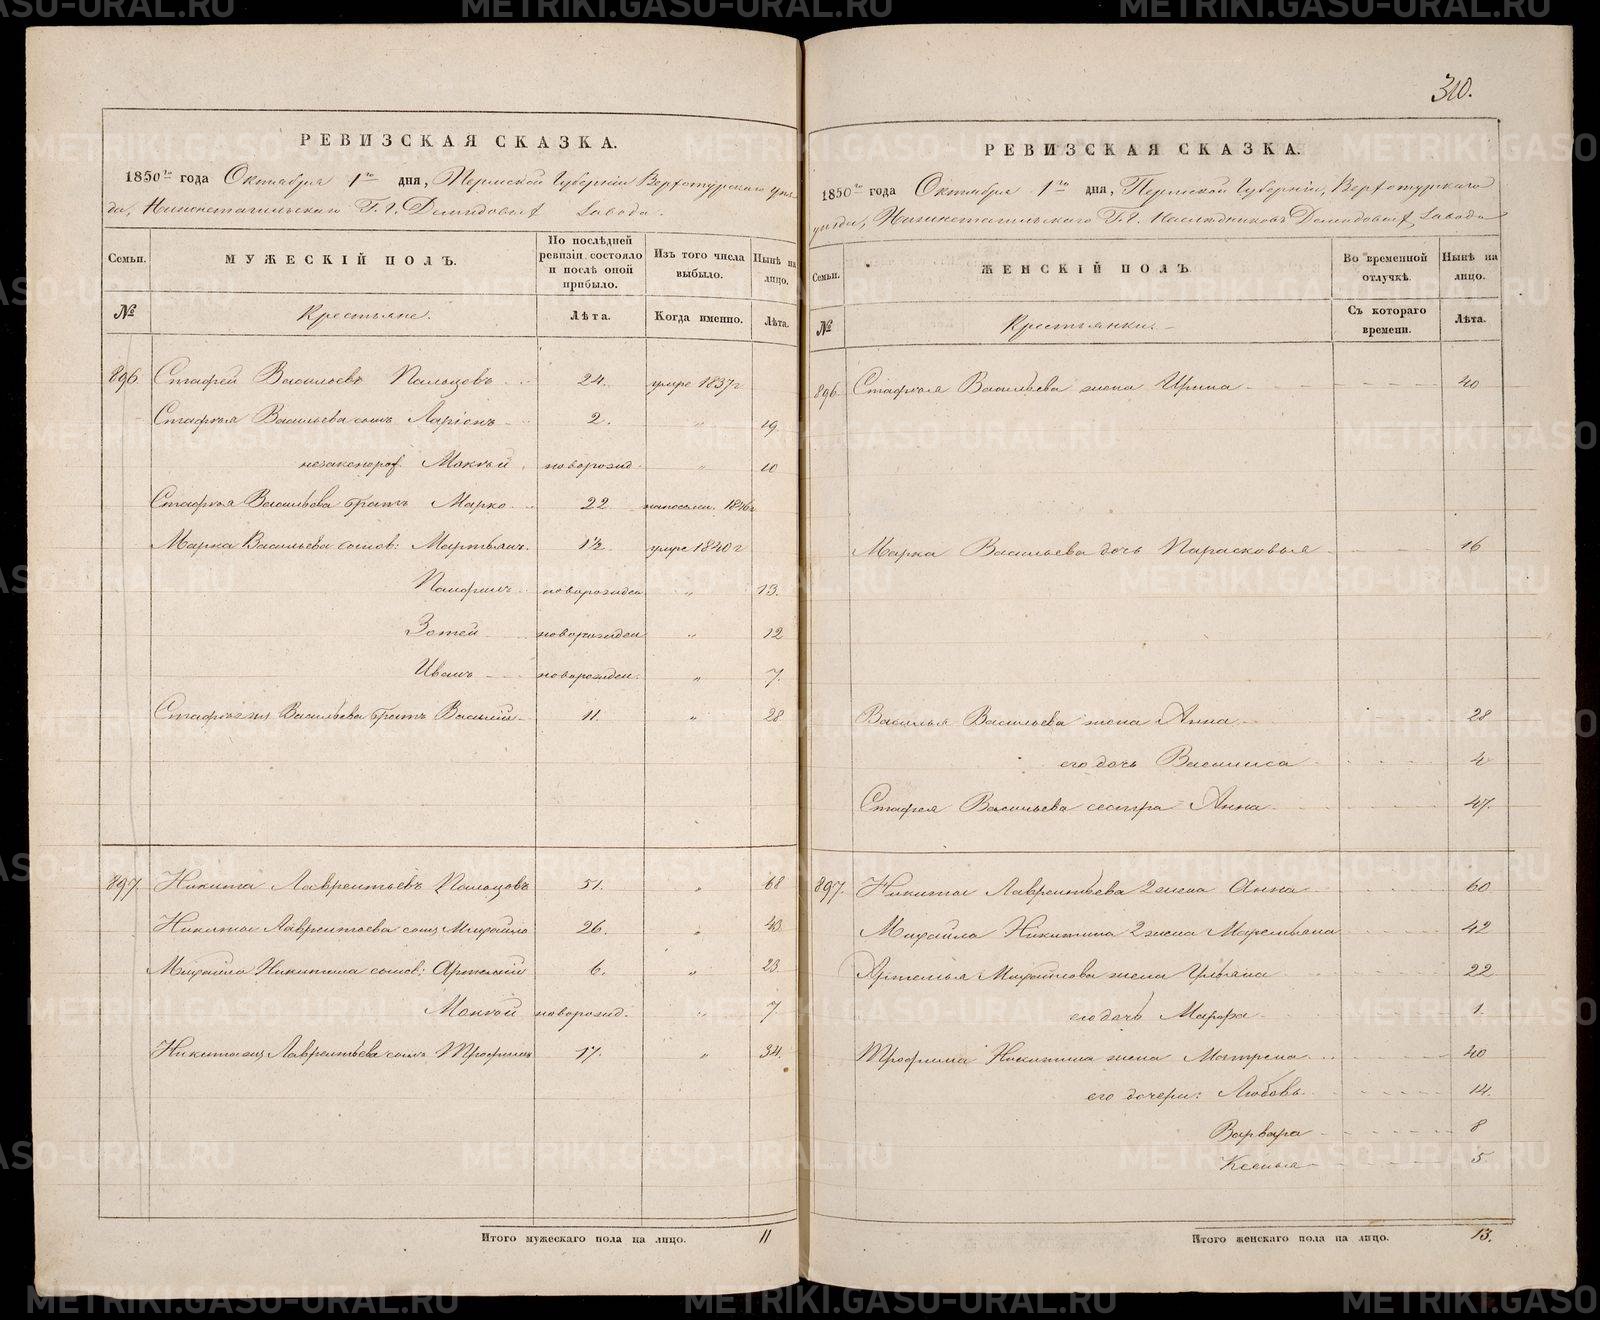 310.
РЕВИЗСКАЯ СКАЗКА.
1850го года Октября 1го дня, Пермской Губерніи Верхотурскаго уѣз-
да, Нижнетагильскаго Г.г. Демидовыхъ Завода.
Семьи. МУЖЕСКІЙ ПОЛЪ. По послѣдней ревизіи состояло и послѣ оной прибыло. Изъ того числа выбыло. Нынѣ на лицо.
№ Крестьяне. Лѣта. Когда именно. Лѣта.
896. Стафей Васильевъ Пальцовъ 24. умре 1837 г
Стафѣя Васильева сынъ Ларіонъ 2. " 19.
незаконорож. Мокѣй новорожд. " 10
Стафѣя Васильева братъ Марко 22 1846 г
Марка Васильева сынов: Мартынъ. 1½ умре 1840 г
Панфилъ новорожден " 13.
Зотей новорожден " 12
Иванъ новорожден. " 7.
Стафѣя Васильева братъ Василій 11. " 28
897. Никита Лаврентьевъ Пальцовъ 51. " 68
Никиты Лаврентьева сынъ Михайло 26. " 43
Михайла Никитина сынов: Артемій 6. " 23
Мокѣй новорожд. " 7.
Никиты Лаврентьева сынъ Трофимъ 17. " 34.
Итого мужескаго пола на лицо. 11
РЕВИЗСКАЯ СКАЗКА.
1850го года Октября 1го дня, Пермской Губерніи, Верхотурскаго
уѣзда, Нижнетагильскаго Г.г. Наслѣдниковъ Демидовыхъ Завода
Семьи. ЖЕНСКІЙ ПОЛЪ. Во временной отлучкѣ. Нынѣ на лицо.
№ Крестьянки. Съ котораго времени. Лѣта.
896. Стафѣя Васильева жена Ирина 40
Марка Васильева дочь Парасковья 16
Василья Васильева жена Анна 28
его дочь Василиса 4
Стафея Васильева сестра Анна 47.
897. Никиты Лаврентьева 2 жена Анна 60
Михайла Никитина 2 жена Маремьяна 42
Артемья Михайлова жена Ульяна 22
его дочь Марфа 1.
Трофима Никитина жена Матрена 40
его дочери: Любовь 14.
Варвара 8
Ксенья 5.
Итого женскаго пола на лицо. 13.
METRIKI.GASO-URAL.RU